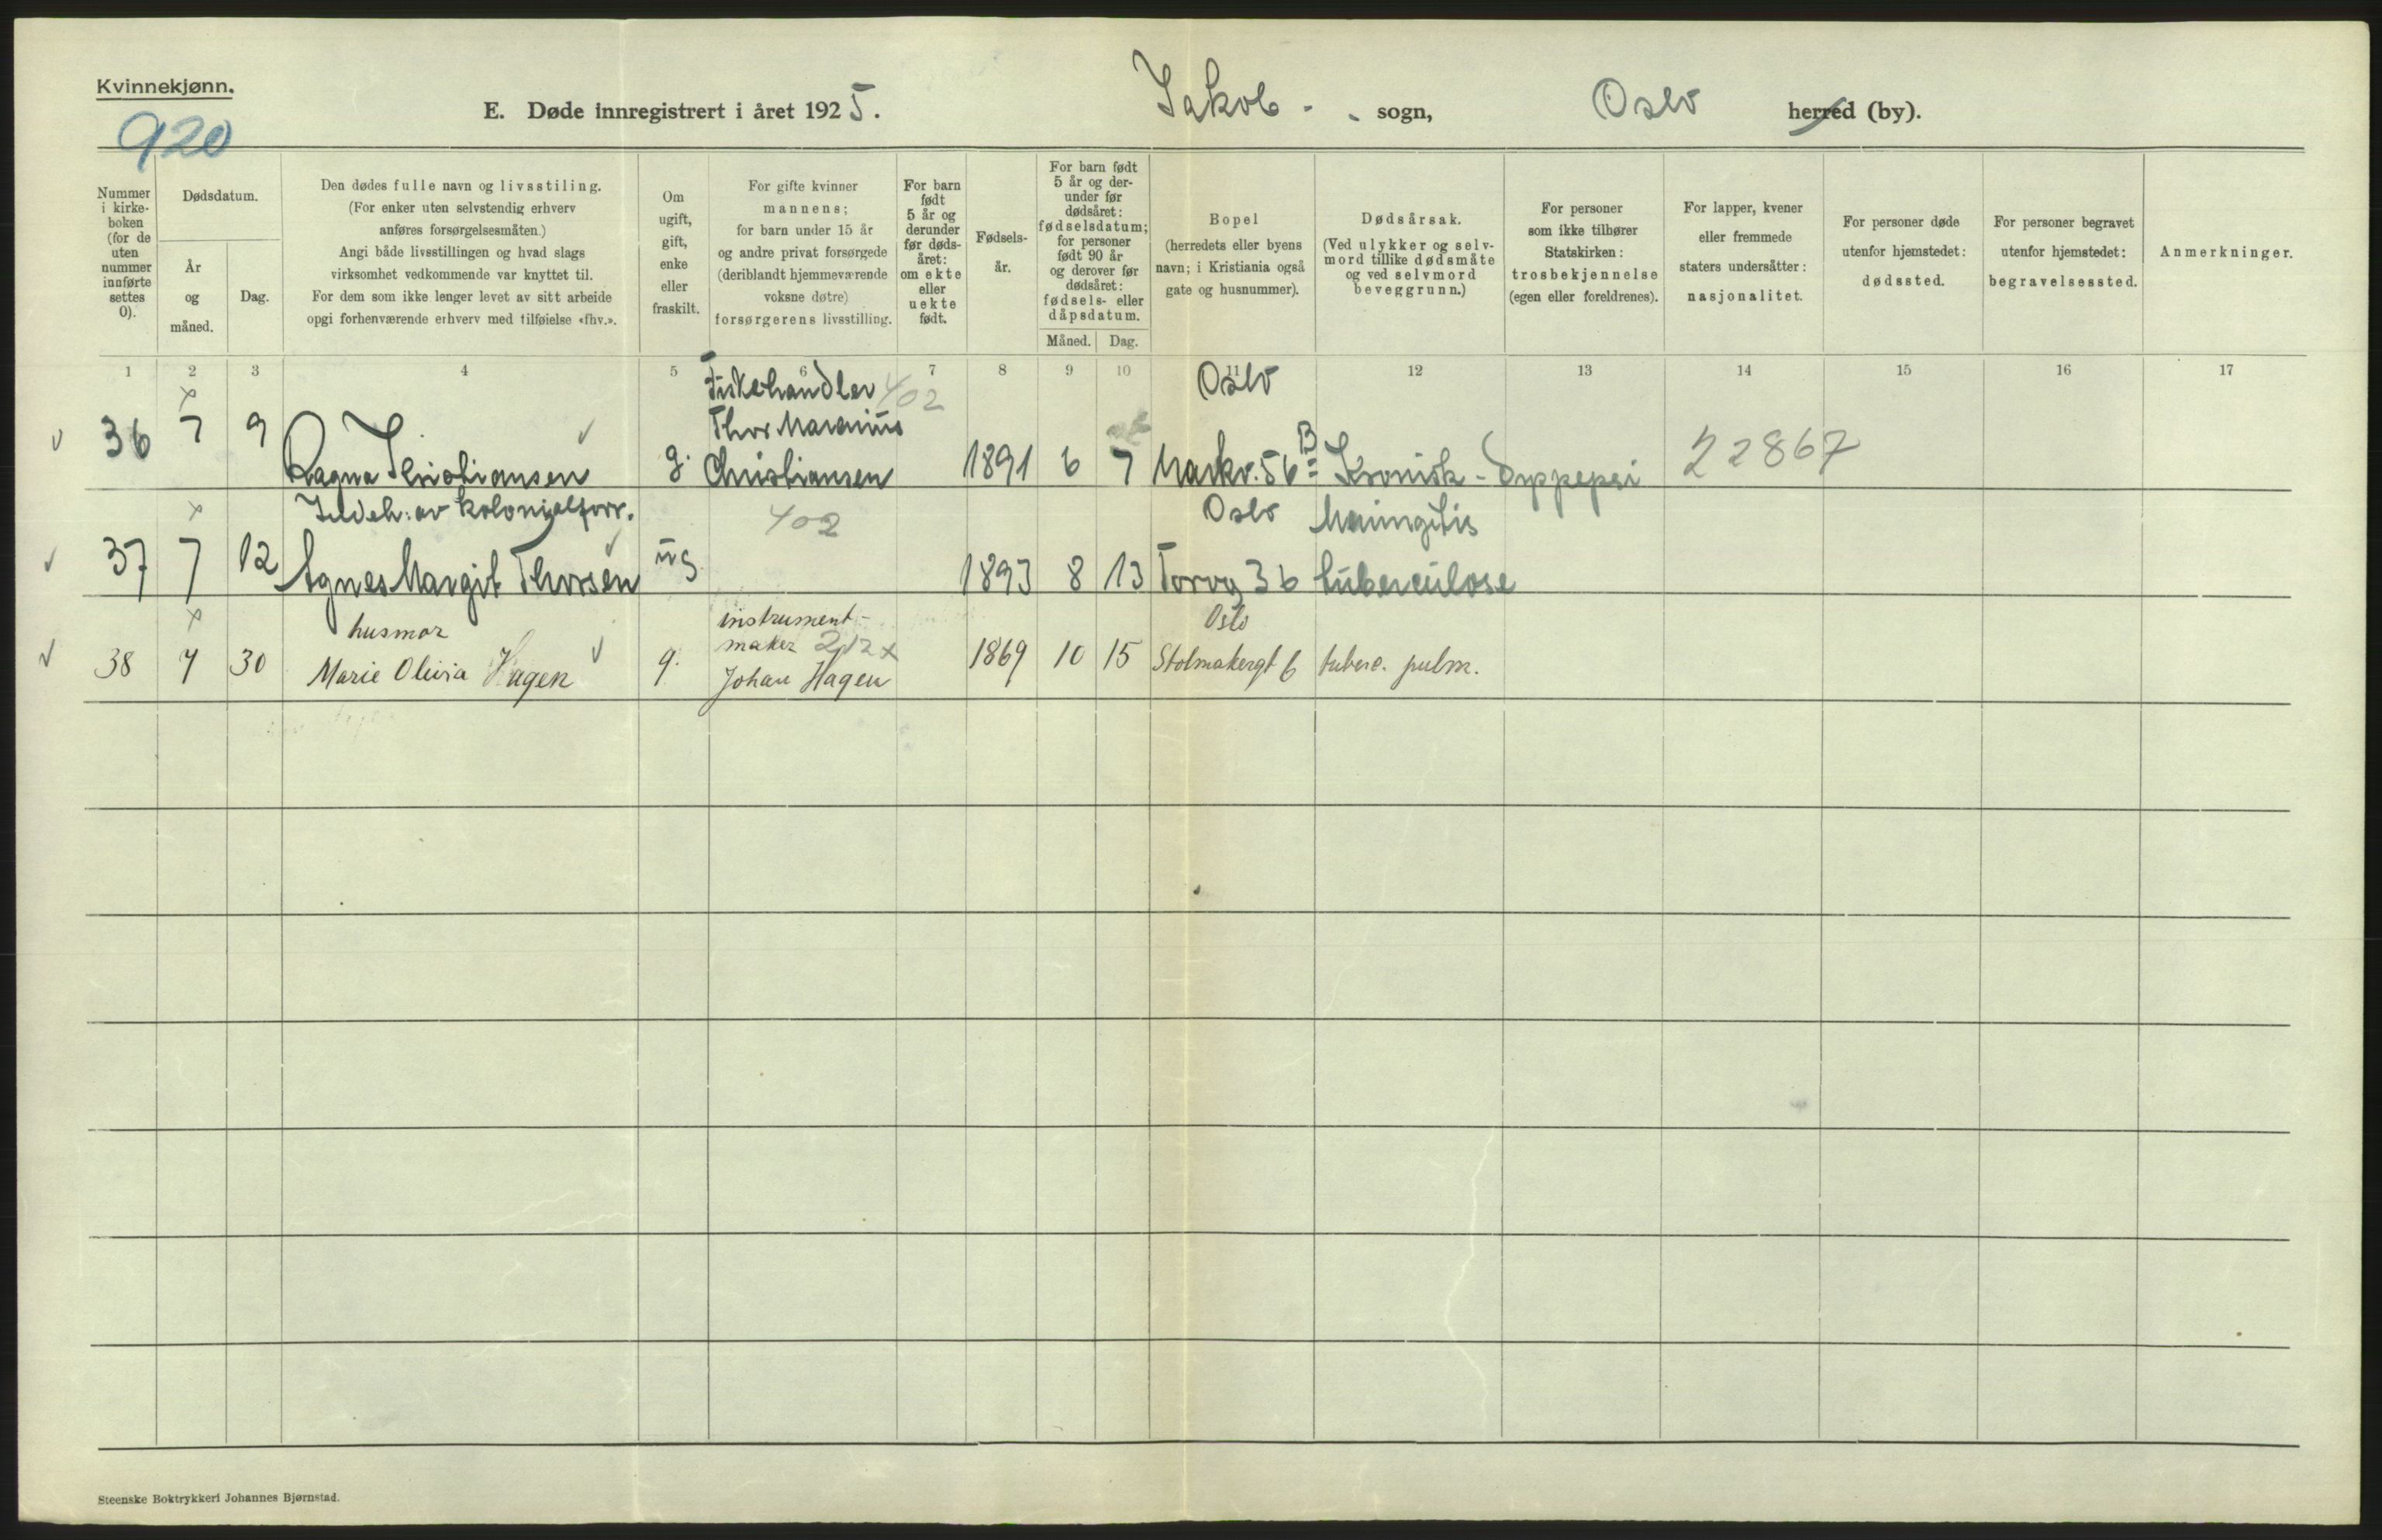 Kvinnekjønn.
920
E. Døde innregistrert i året 1925. Jakob - sogn, Oslo herred (by).
Nummer i kirke-boken (for de uten nummer innførte settes 0).
Dødsdatum.
År og måned.
Dag.
Den dødes fulle navn og livsstiling.
(For enker uten selvstendig erhverv
anføres forsørgelsesmåten.)
Angi både livsstillingen og hvad slags
virksomhet vedkommende var knyttet til.
For dem som ikke lenger levet av sitt arbeide
opgi forhenværende erhverv med tilføielse «fhv.».
Om
ugift,
gift,
enke
eller
fraskilt.
For gifte kvinner
mannens;
for barn under 15 år
og andre privat forsørgede
(deriblandt hjemmeværende
voksne døtre)
forsørgerens livsstilling.
For barn
født
5 år og
derunder
før døds-
året:
om ekte
eller
uekte
født.
Fødsels-
år.
For barn født
5 år og der-
under før
dødsåret:
fødselsdatum;
for personer
født 90 år
og derover før
dødsåret:
fødsels- eller
dåpsdatum.
Måned. Dag.
Bopel
(herredets eller byens
navn; i Kristiania også
gate og husnummer).
Dødsårsak.
(Ved ulykker og selv-
mord tillike dødsmåte
og ved selvmord
beveggrunn.)
For personer
som ikke tilhører
Statskirken:
trosbekjennelse
(egen eller foreldrenes).
For lapper, kvener
eller fremmede
staters undersåtter:
nasjonalitet.
For personer døde
utenfor hjemstedet:
dødssted.
For personer begravet
utenfor hjemstedet:
begravelsessted.
Anmerkninger.
1 2 3 4 5 6 7 8 9 10 11 12 13 14 15 16 17
Fiskehandler 402 Oslo
Thor Marinius
36 7 9 Ragna Christiansen g. Christiansen 1891 6 7 Markv. 56 B Kronisk - Dyppepsi 22867
Indeh. av kolonialforr. 402 Oslo Meningitis
37 7 12 Agnes Margit Thorsen ug 1893 8 13 Torvg 36 tuberculose
husmor instrument- Oslo
maker 212 x
38 7 30 Marie Olivia Hagen g. Johan Hagen 1869 10 15 Stolmakergt 6 tuberc. pulm.
Steenske Boktrykkeri Johannes Bjørnstad.